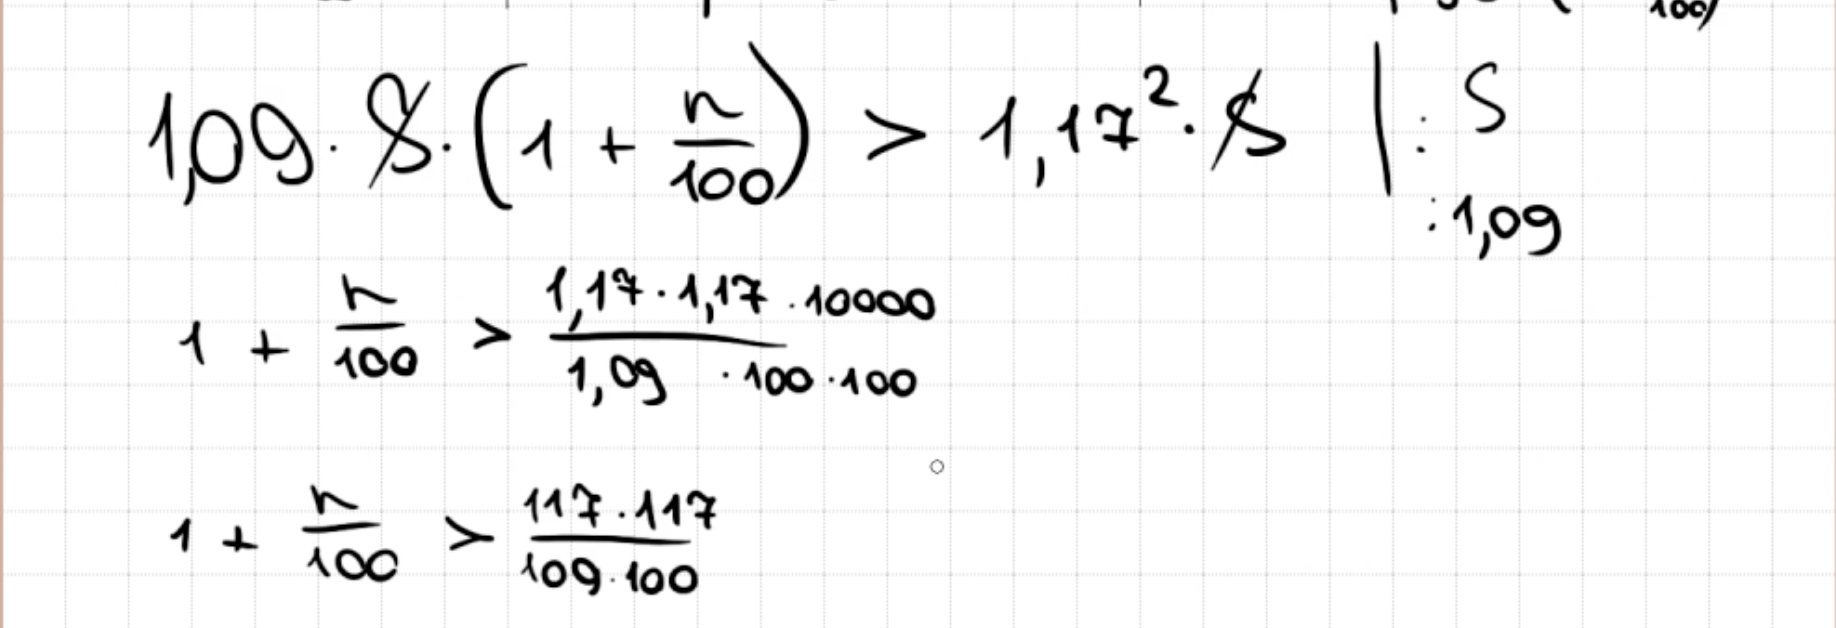 100)
1,09 · S · (1 + n/100) > 1,17² · S | : S
: 1,09
1 + n/100 > 1,17 · 1,17 · 10000 / 1,09 · 100 · 100
1 + n/100 > 117 · 117 / 109 · 100